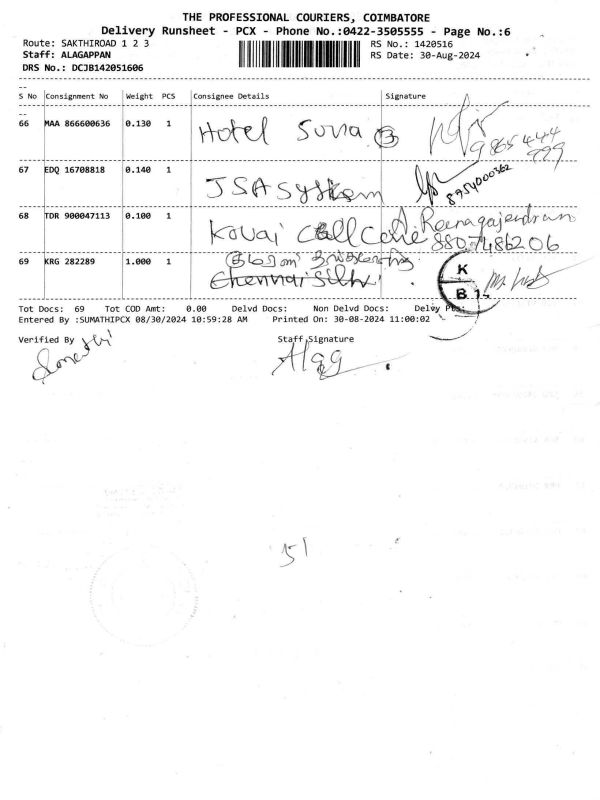 THE PROFESSIONAL COURIERS, COIMBATORE
Delivery Runsheet - PCX - Phone No.:0422-3505555 - Page No.:6
Route: SAKTHIROAD 1 2 3
RS No.: 1420516
Staff: ALAGAPPAN
RS Date: 30-Aug-2024
DRS No.: DCJB142051606
S No Consignment No Weight PCS Consignee Details Signature
66 MAA 866600636 0.130 1 Hotel Suria
9865444
799
67 EDQ 16708818 0.140 1 JSA System
8754000362
68 TDR 900047113 0.100 1 Kovai Call Care Reenagajendran
8807486206
69 KRG 282289 1.000 1
Chennai Silk
K
B 14
Tot Docs: 69 Tot COD Amt: 0.00 Delvd Docs: Non Delvd Docs: Delvy Pcs:
Entered By :SUMATHIPCX 08/30/2024 10:59:28 AM Printed On: 30-08-2024 11:00:02
Verified By Staff Signature
Sumathi Alagg
51